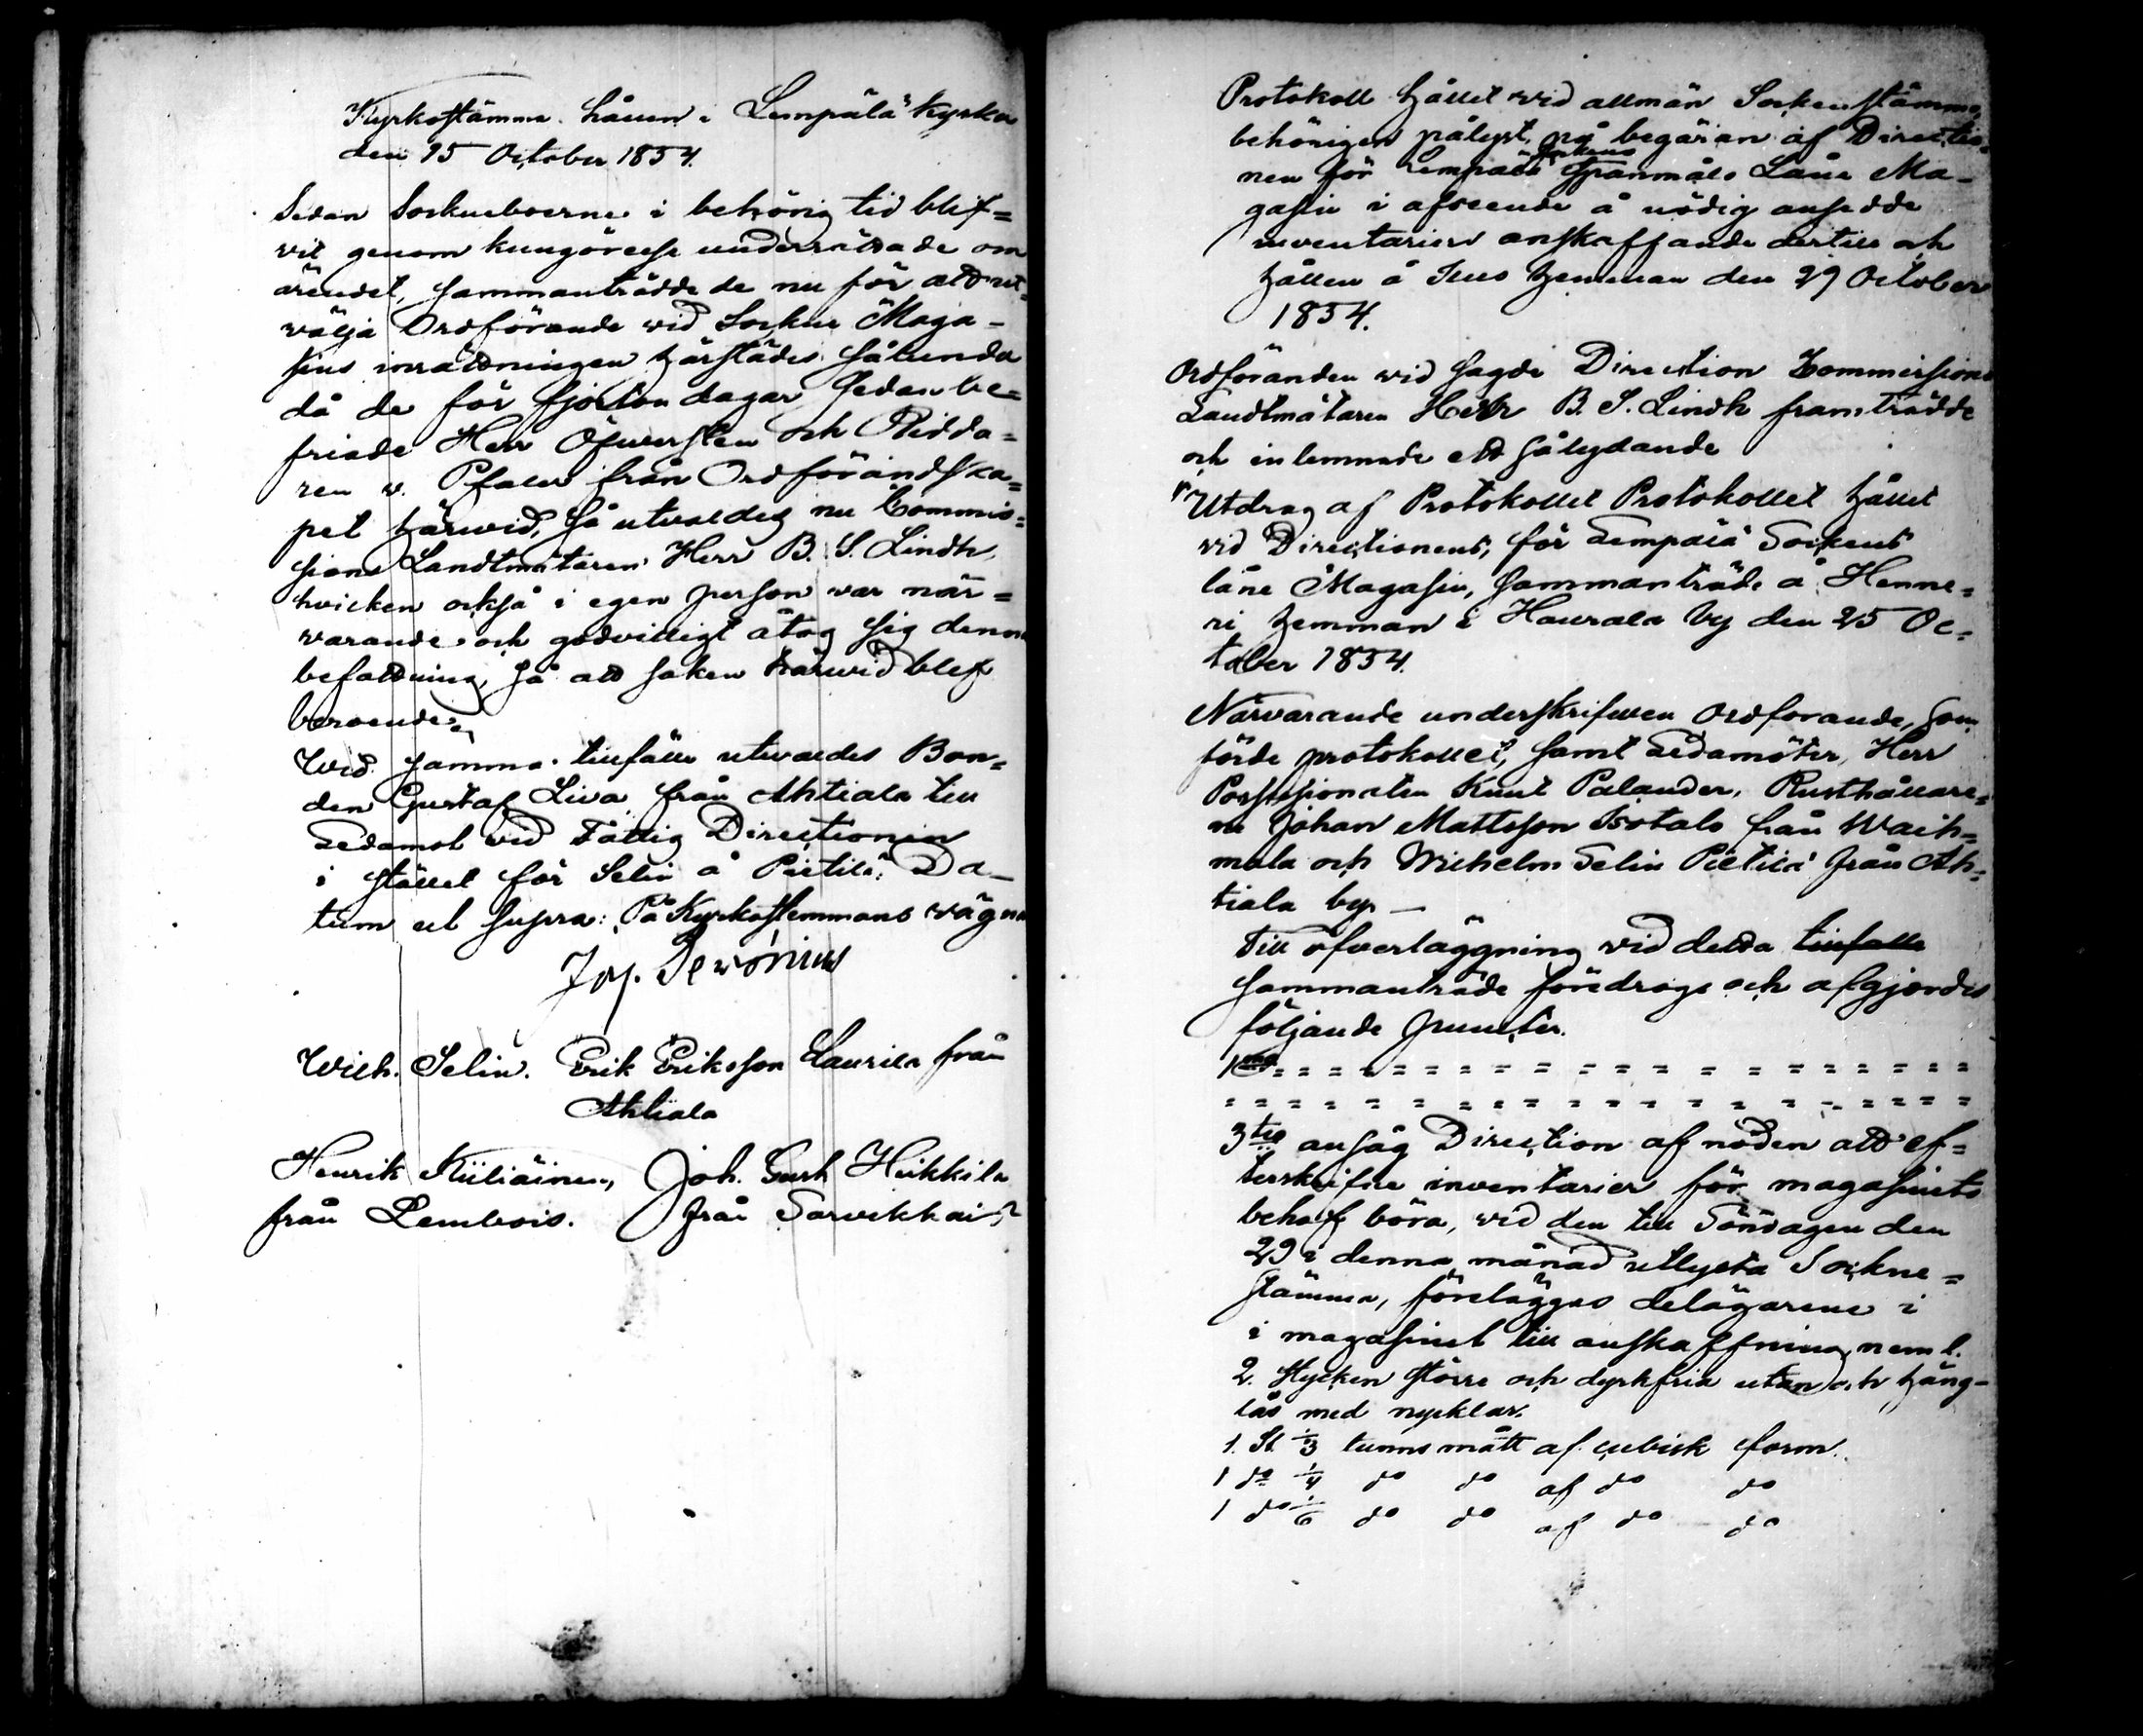 Kyrkostämma hållen i Lempälä Kyrka
den 15 October 1854.
Sedan Sockneboerne i behörig tid blif=
vit genom kungörelse underrättade om
ärendet, sammanträdde de nu för att ut=
välja Ordförande wid Socknе Maga-
sins inrättningen härstädes sålunda
då de för fjorton dagar sedan be=
friade Herr Öfwersten och Ridda=
ren v. Pfaler från Ordförandska=
pet härwid, så utvaldes nu Commis=
sions Landtmätaren Herr B. S. Lindh,
hvilken också i egen person war när=
warande och godvilligt åtog sig denna
befattning, så att saken härwid blef
beroende.
Wid samma tillfälle utwaldes Bon=
den Gustaf Liva från Ahtiala till
Ledamot vid Fattig Directionen
i stället för Selin å Pietilä. Da-
tum ut supra: På Kyrkostemmans vägna
Jos.
Wilh. Selin. Erik Eriksson Laurila från
Ahtiala
Henrik Kiiliäinen, Joh. Gust Heikkilä
från Lembois. från
Protokoll hållet wid allmän Sockenstämma,
behörigen pålyst, på begäran af Directio=
nen för Lempälä Sockens Spanmåls Låne Ma-
gasin i afseende å nödig ansedde
inventariers anskaffande dertill och
hållen å hemman den 29 October
1854.
Ordföranden wid sagde Direction Commissions
Landtmätaren Herr B. S. Lindh framträdde
och inlemnade ett sålydande
"Utdrag af Protokollet Protokollet hållet
vid Directionens, för Lempälä Sockens
låne Magasin, sammanträde å Henne=
ri hemman i Haurala by den 25 Oc=
tober 1854.
Närvarande underskrifwen Ordforande, som
förde protokollet, samt Ledamöter, Herr
Possessionaten Knut Palander, Rusthållare=
ne Johan Mattsson Isotalo från Waih=
mala och Wilhelm Selin Pietilä från Ah=
tiala by. —
Till öfverläggning vid detta tillfälle
sammanträde föredrogs och afgjordes
följande puncter.
1mo = = = = = = = = = = = = = = = = =
= = = = = = = = = = = = = = = = = =
3tio ansåg Direction af nöden att ef=
terskrifne inventarier för magasinets
behof böra, vid den till Söndagen den
29 i denna månad utlysta Sockne=
stämma, föreläggas delägarene i
i magasinet till anskaffning, neml.
2. Stycken större och dyrkfria utan och häng-
lås med nycklar.
1. St. 1/3 tunns mått af cubisk form.
1 do 1/4 do do af do do
1 do 1/6 do do af do do